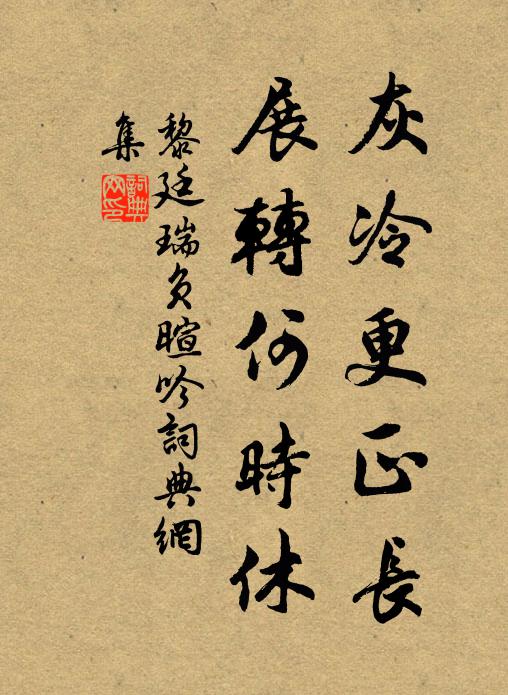 灰冷更正長
展轉何時休
黎廷瑞負暄吟詞典網
集
詞典網印